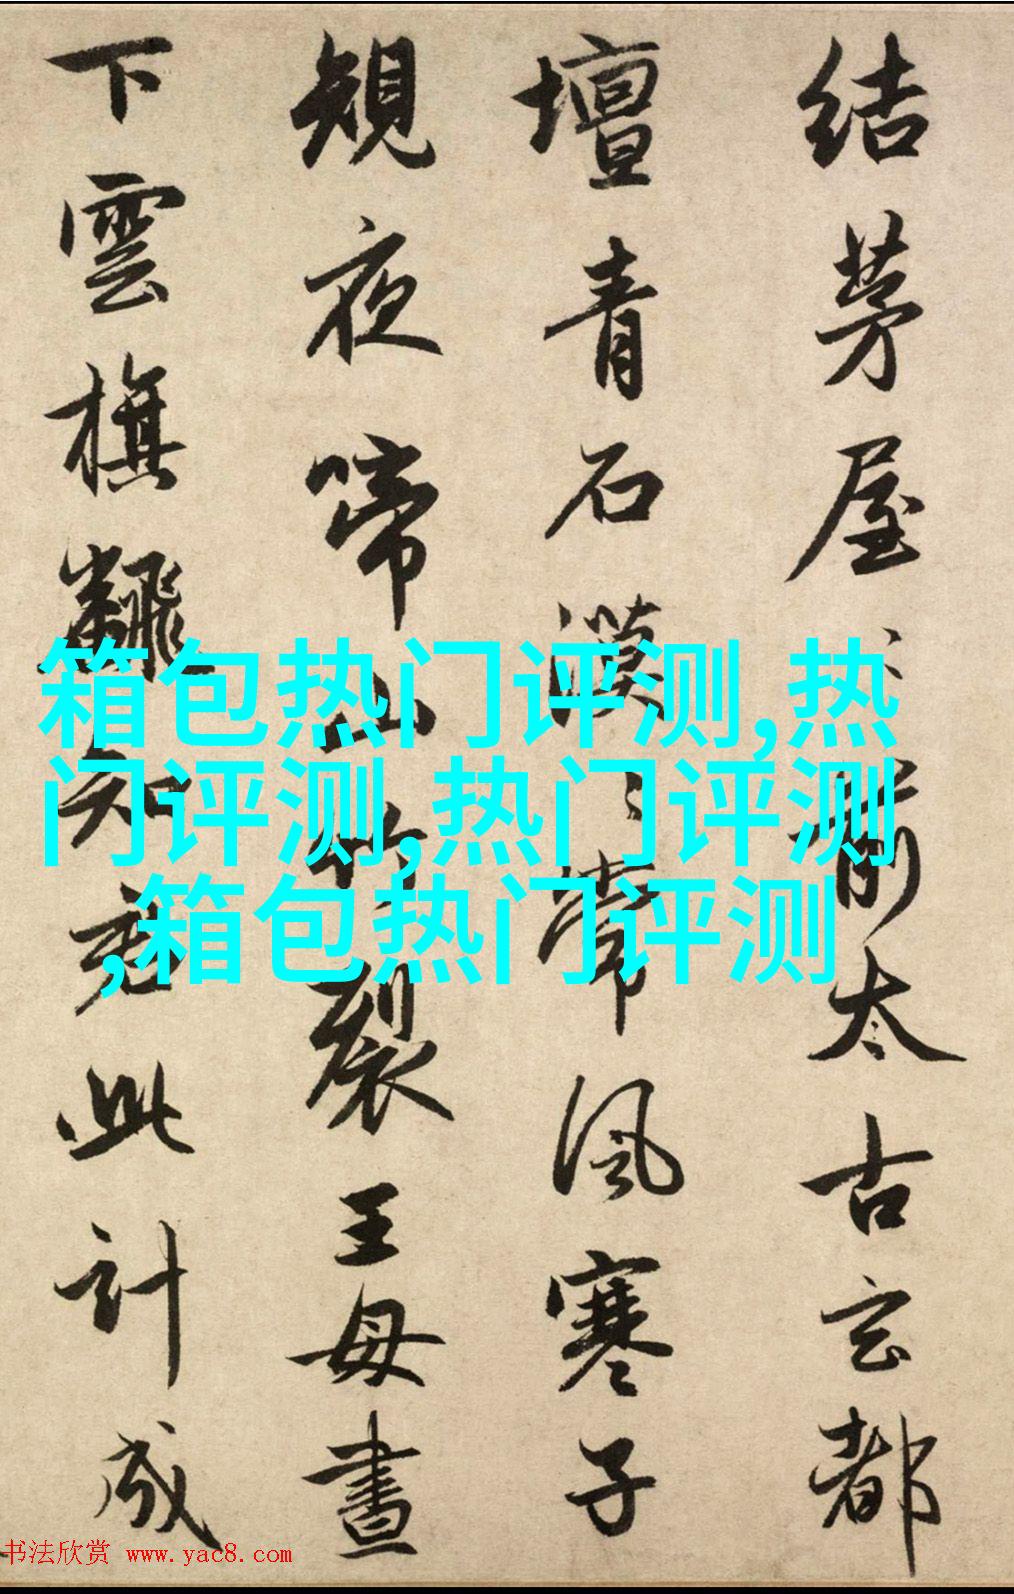 結茅屋〻前太古玄都
壇青石漠〻常風寒子
規夜啼山竹裂王母晝
下雲旗飜知君此計成
箱包热门评测,热
门评测,热门评测
,箱包热门评测
书法欣赏 www.yac8.com